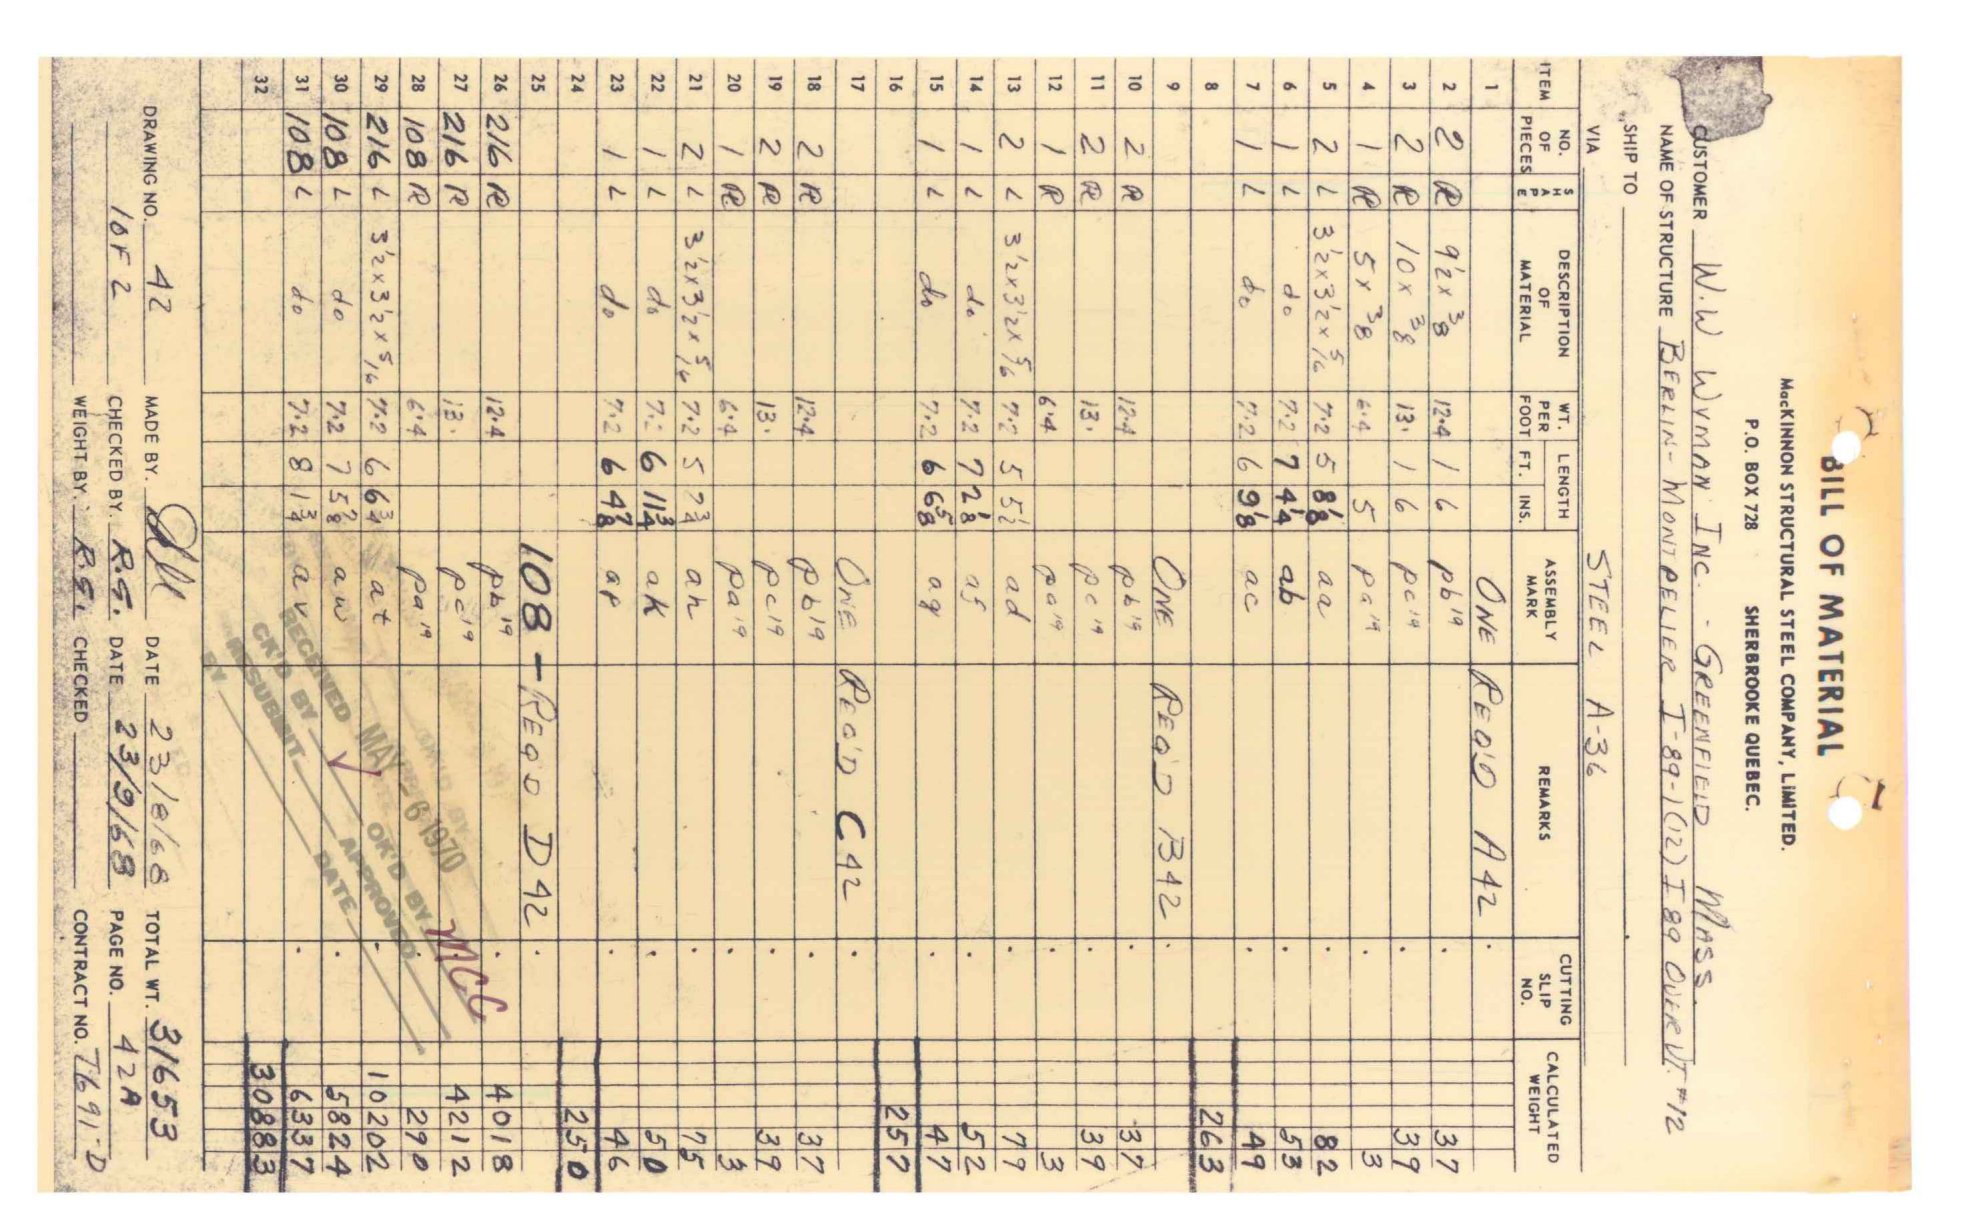 BILL OF MATERIAL
MacKINNON STRUCTURAL STEEL COMPANY, LIMITED.
P.O. BOX 728 SHERBROOKE QUEBEC.
CUSTOMER W.W WYMAN INC. - GREENFIELD MASS.
NAME OF STRUCTURE BERLIN-MONTPELIER I-89-1(12) I 89 OVER VT #12
SHIP TO
VIA STEEL A-36
ITEM NO. OF PIECES SHAPE DESCRIPTION OF MATERIAL WT. PER FOOT LENGTH FT. INS. ASSEMBLY MARK REMARKS CUTTING SLIP NO. CALCULATED WEIGHT
1 ONE REQ'D A42
2 2 R 9 1/2 x 3/8 12.4 1 6 pb19 37
3 2 R 10 x 3/8 13. 1 6 pc19 39
4 1 R 5 x 3/8 6.4 5 pa19 3
5 2 L 3 1/2 x 3 1/2 x 5/16 7.2 5 8 1/8 aa 82
6 1 L do 7.2 7 4 1/4 ab 53
7 1 L do 7.2 6 9 1/8 ac 49
8 263
9 ONE REQ'D B42
10 2 R 12.4 pb19 37
11 2 R 13. pc19 39
12 1 R 6.4 pa19 3
13 2 L 3 1/2 x 3 1/2 x 5/16 7.2 5 5 1/2 ad 79
14 1 L do. 7.2 7 2 1/8 af 52
15 1 L do 7.2 6 6 5/8 ag 47
16 257
17 ONE REQ'D C42
18 2 R 12.4 pb19 37
19 2 R 13. pc19 39
20 1 R 6.4 pa19 3
21 2 L 3 1/2 x 3 1/2 x 5/16 7.2 5 2 3/4 ah 75
22 1 L do 7.2 6 11 3/4 ak 50
23 1 L do 7.2 6 4 7/8 ap 46
24 250
25 108 - REQ'D D42
26 216 R 12.4 pb19 4018
27 216 R 13. pc19 4212
28 108 R 6.4 pa19 290
29 216 L 3 1/2 x 3 1/2 x 5/16 7.2 6 6 3/4 at 10202
30 108 L do 7.2 7 5 7/8 aw 5824
31 108 L do 7.2 8 1 3/4 av 6337
32 30883
RECEIVED MAY - 6 1970
CK'D BY OK'D BY MCC
RESUBMIT APPROVED
BY DATE
DRAWING NO. 42 MADE BY. DATE 23/8/68 TOTAL WT. 31653
1 OF 2 CHECKED BY. R.G. DATE 23/9/68 PAGE NO. 42A
WEIGHT BY. R.G. CHECKED CONTRACT NO. 7691-D